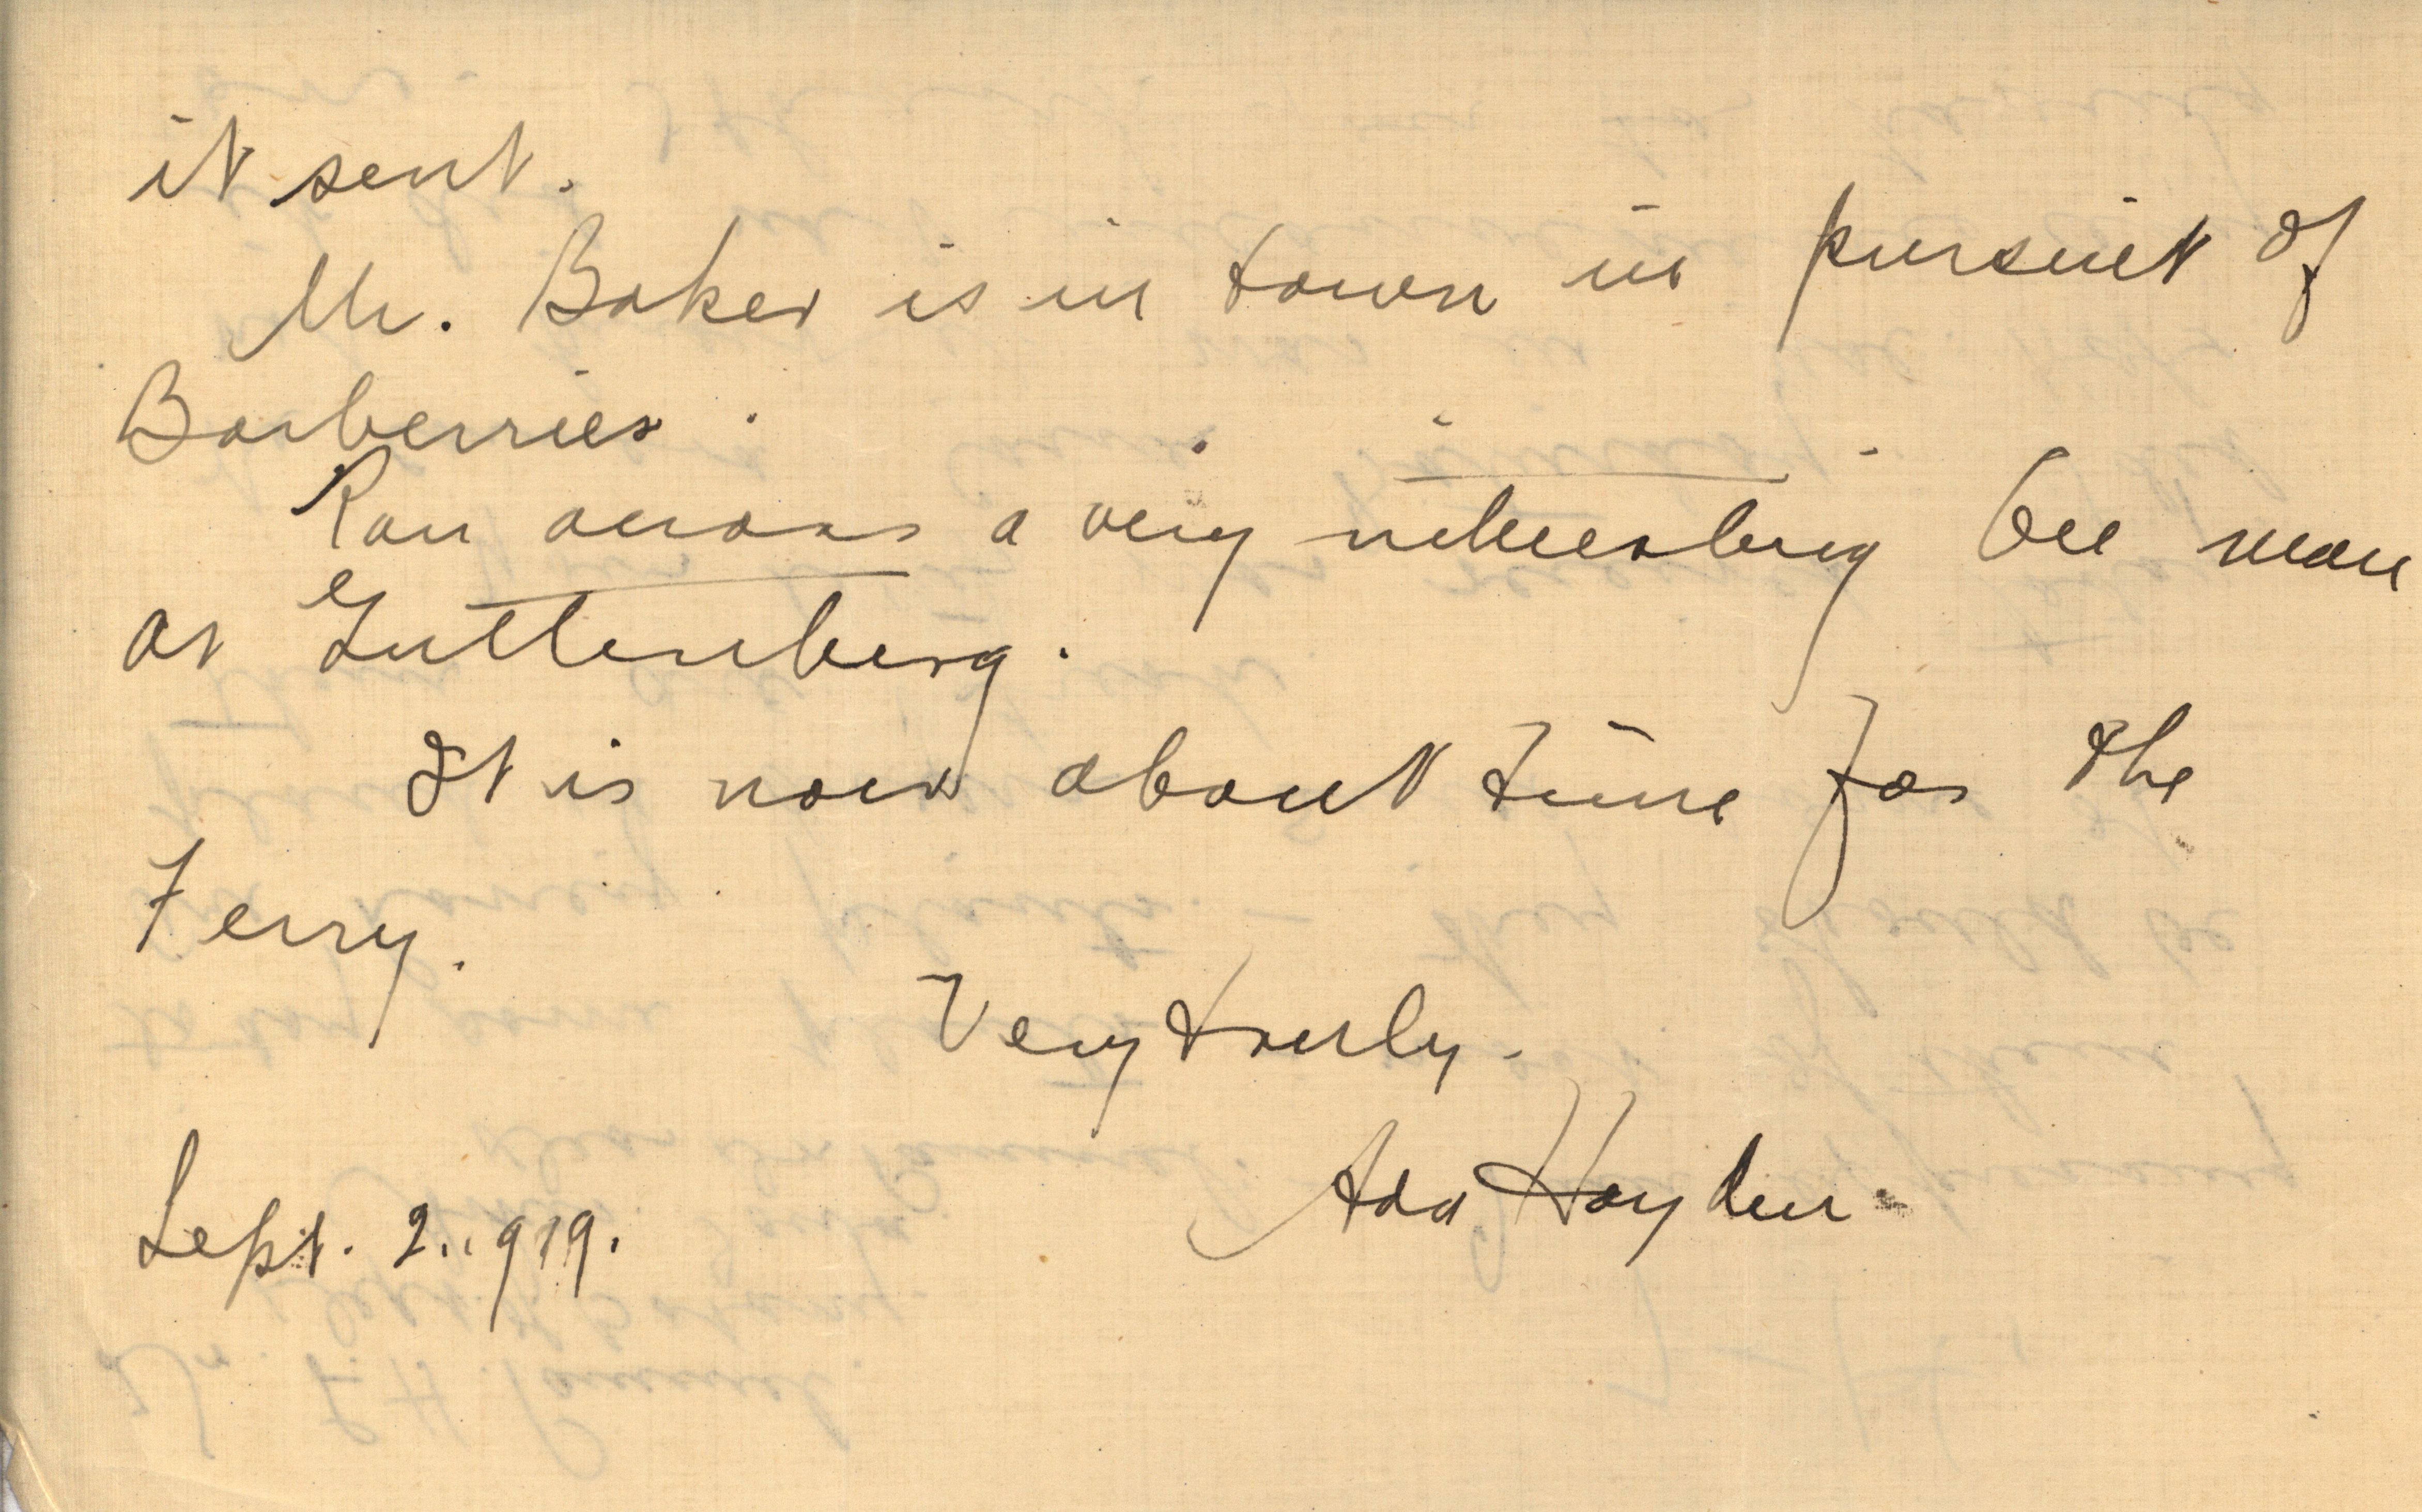 it sent.
Mr. Baker is in town in pursuit of
Barberries.
Ran across a very interesting bee man
at Guttenberg.
It is now about time for the
Ferry.
Very truly.
Ada Hayden.
Sept. 2., 1919.